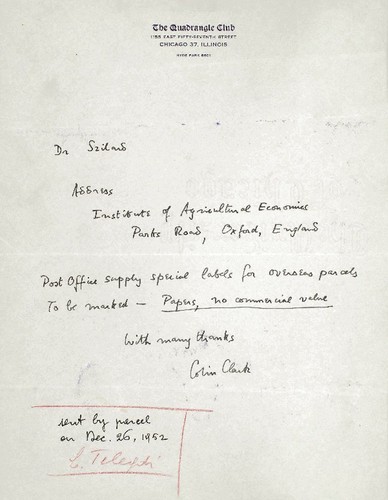 The Quadrangle Club
1155 EAST FIFTY-SEVENTH STREET
CHICAGO 37, ILLINOIS
Dr Szilard
Address
Institute of Agricultural Economics
Parks Road, Oxford, England
Post Office supply special labels for overseas parcels
To be marked — Papers, no commercial value
With many thanks
Colin Clark
sent by parcel
on Dec. 26, 1952